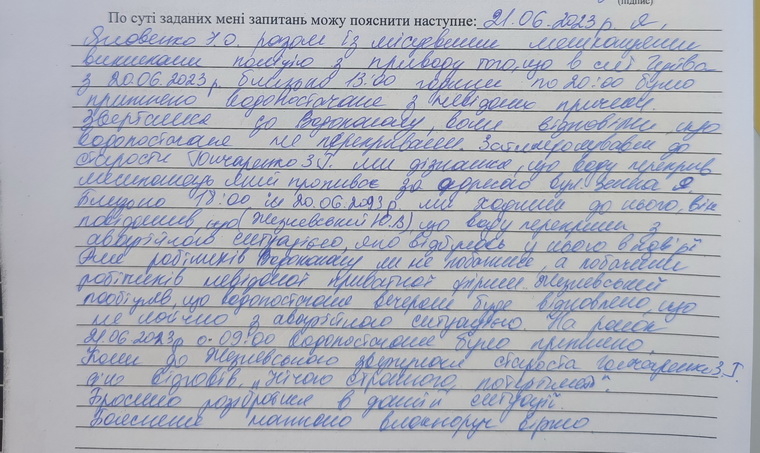 (підпис)
По суті заданих мені запитань можу пояснити наступне: 21.06.2023 р я,
Яновенко Н.О. разом із місцевими мешканцями
викликали поліцію з приводу того, що в смт
з 20.06.2023 р. близько 13:00 години по 20:00 було
припинено водопостачане з невідомих причин.
Звертались до Водоканалу, вони відповіли що
водопостачане не перекривали. Зателефонували до
старости Гончаренко З.Г. ми дізнались, що воду перекрив
мешканець який проживає за адресою вул.
Близько 18:00 20.06.2023р ми ходили до нього, він
повідомив, що (Жезневський Ю.В), що воду перекрили з
аварійною ситуацією, яка відбулась у нього в подвір'ї
Але робітників Водоканалу ми не побачили, а побачили
робітників невідомої приватної фірми. Жезневський
пообіцяв, що водопостачане вечером буде відновлено, що
не пов'язано з аварійною ситуацією. На ранок
21.06.2023р о 09:00 водопостачане було припинено
Коли до Жезневського звернулась староста Гончаренко З.Г.
він відповів, „Нічого страшного, потерпите".
Просимо розібратись в даній ситуації.
Пояснення написано власноруч вірно